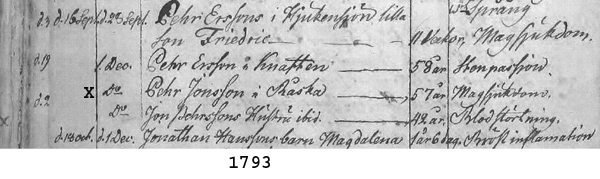 Språng
d. 16 Sept. d. 28 Sept. Pehr Erssons i Tjukensjön lilla
son Friedric 11 Veckor. Magsjukdom.
d. 19 1. Dec. Pehr Ersson å Knatten 58 år. Stenpassion.
x Do Pehr Jönsson å Råska 57 år. Magsjukdom.
d. 2
Do Jon Pehrssons Hustru ibid. 42. år. Blodstörtning.
d. 18 oct. d. 1 Dec. Jonathan Hanssons barn Magdalena 1 år 6 dag. Bröst inflamation
1793